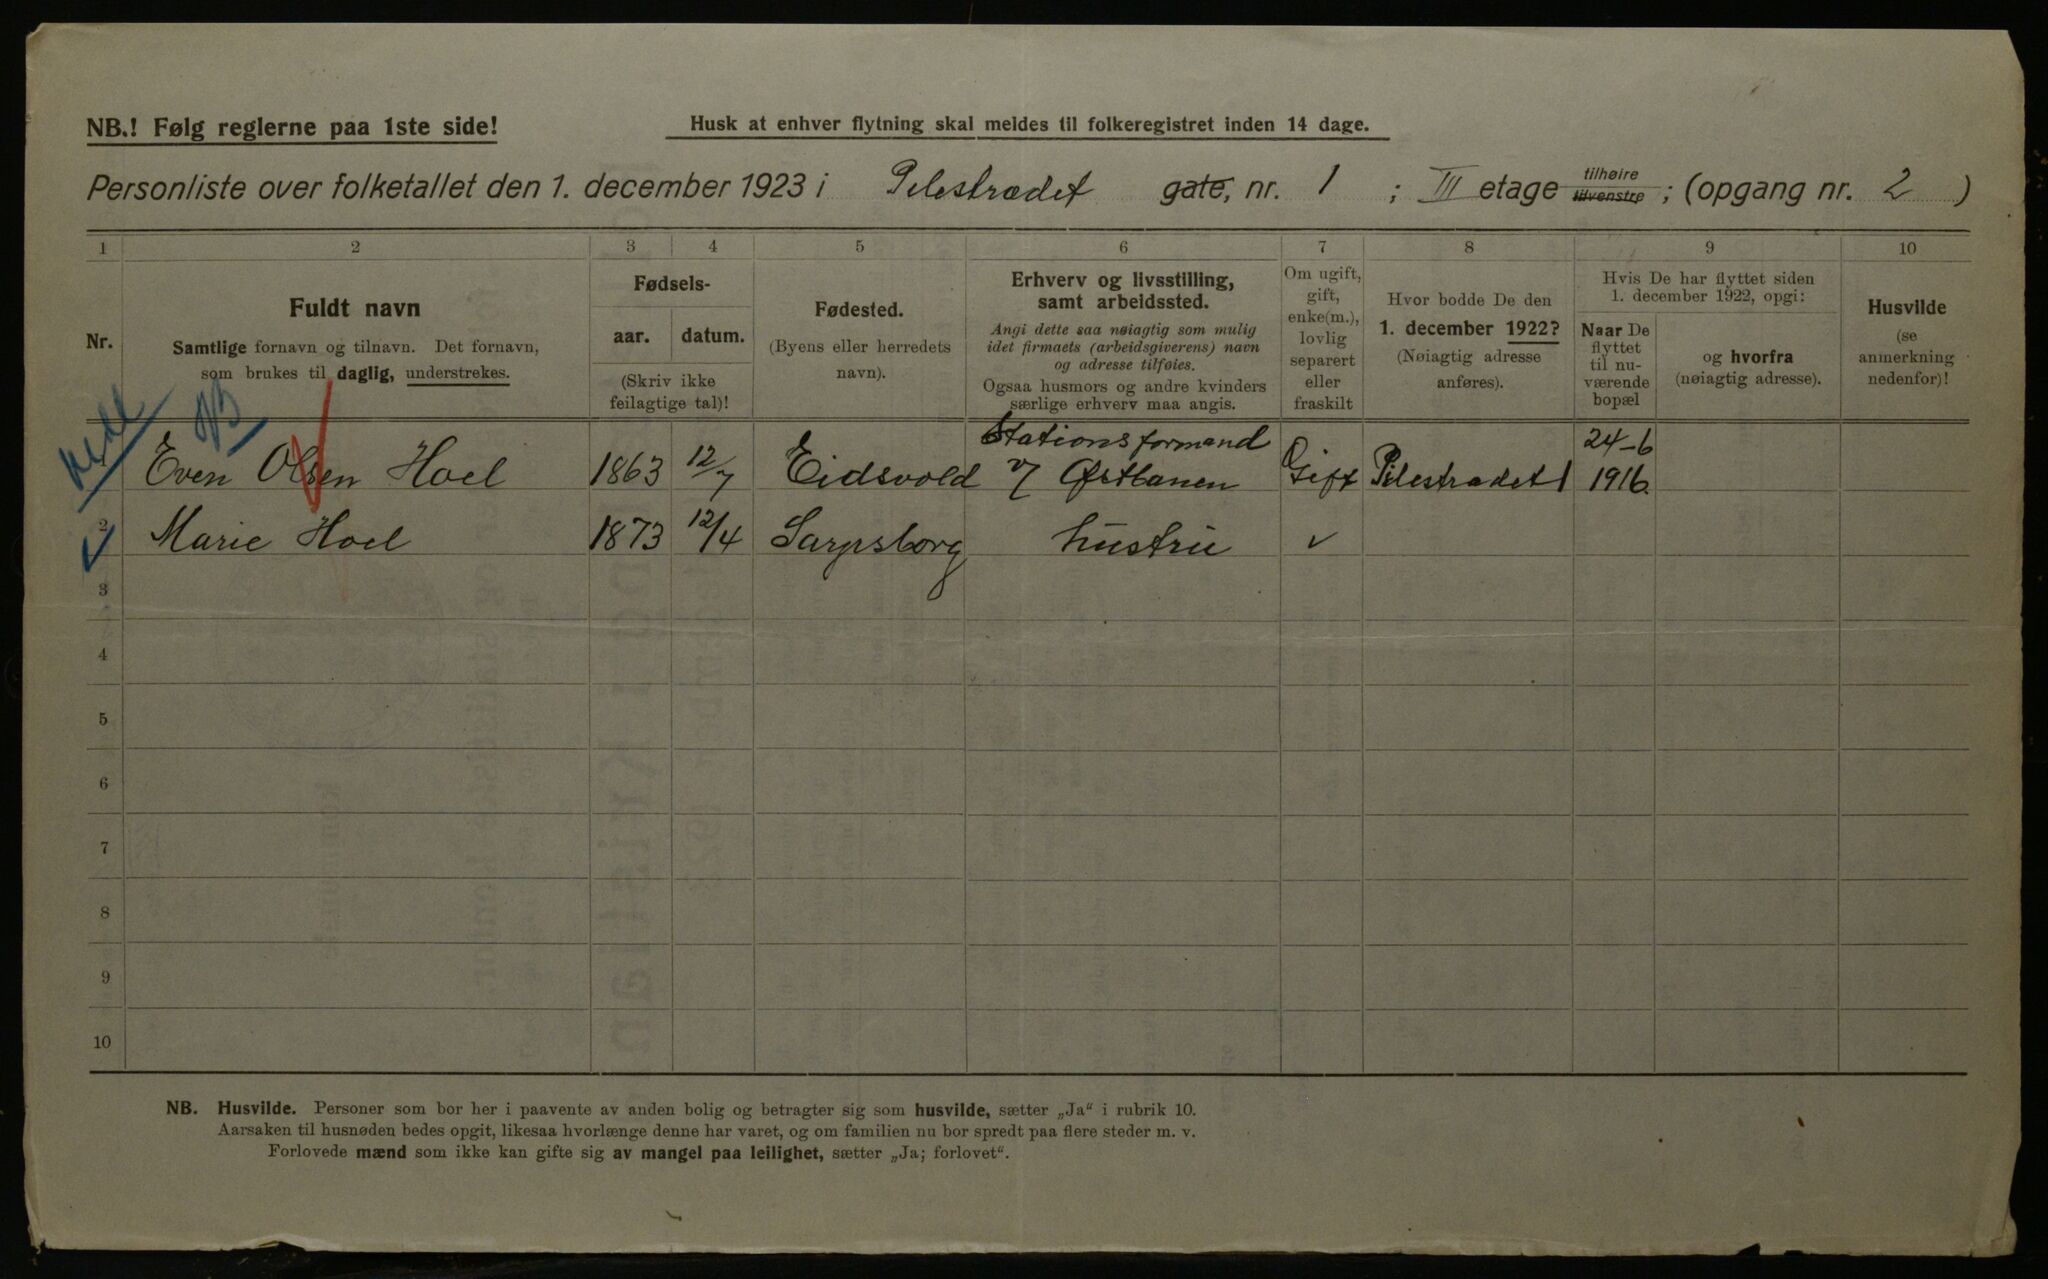 NB.! Følg reglerne paa 1ste side!
Husk at enhver flytning skal meldes til folkeregistret inden 14 dage.
Personliste over folketallet den 1. december 1923 i Pilestrædet gate, nr. 1 ; III etage tilhøire tilvenstre ; (opgang nr. 2 )
1 2 3 4 5 6 7 8 9 10
Nr.
Fuldt navn
Samtlige fornavn og tilnavn. Det fornavn,
som brukes til daglig, understrekes.
Fødsels-
aar. datum.
(Skriv ikke
feilagtige tal)!
Fødested.
(Byens eller herredets
navn).
Erhverv og livsstilling,
samt arbeidssted.
Angi dette saa nøiagtig som mulig
idet firmaets (arbeidsgiverens) navn
og adresse tilføies.
Ogsaa husmors og andre kvinders
særlige erhverv maa angis.
Om ugift,
gift,
enke(m.),
lovlig
separert
eller
fraskilt
Hvor bodde De den
1. december 1922?
(Nøiagtig adresse
anføres).
Hvis De har flyttet siden
1. december 1922, opgi:
Naar De
flyttet
til nu-
værende
bopæl
og hvorfra
(nøiagtig adresse).
Husvilde
(se
anmerkning
nedenfor)!
NB
Even Olsen Hoel 1863 12/7 Eidsvold Stationsformand v/ Østbanen Gift Pilestrædet 1 24-6 1916.
2 Marie Hoel 1873 12/4 Sarpsborg hustru
3
4
5
6
7
8
9
10
NB. Husvilde. Personer som bor her i paavente av anden bolig og betragter sig som husvilde, sætter „Ja“ i rubrik 10.
Aarsaken til husnøden bedes opgit, likesaa hvorlænge denne har varet, og om familien nu bor spredt paa flere steder m. v.
Forlovede mænd som ikke kan gifte sig av mangel paa leilighet, sætter „Ja; forlovet“.